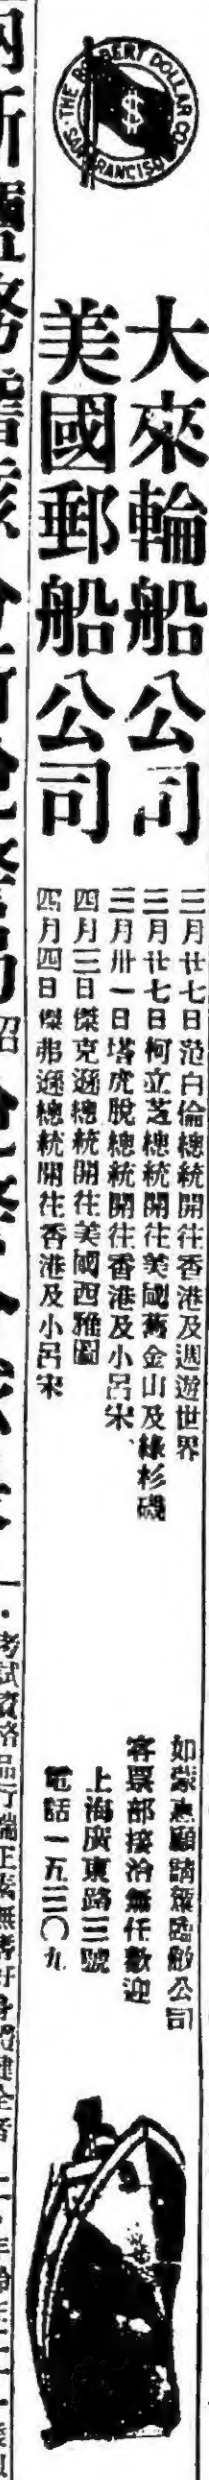 THE ROBERT DOLLAR CO. SAN FRANCISCO
$
大來輪船公司
美國郵船公司
三月廿七日范白倫總統開往香港及週遊世界
三月廿七日柯立芝總統開往美國舊金山及綠杉磯
三月卅一日塔虎脫總統開往香港及小呂宋
四月三日傑克遜總統開往美國西雅圖
四月四日傑弗遜總統開往香港及小呂宋
如蒙惠顧請駕臨敝公司
客票部接洽無任歡迎
上海廣東路三號
電話一五三〇九